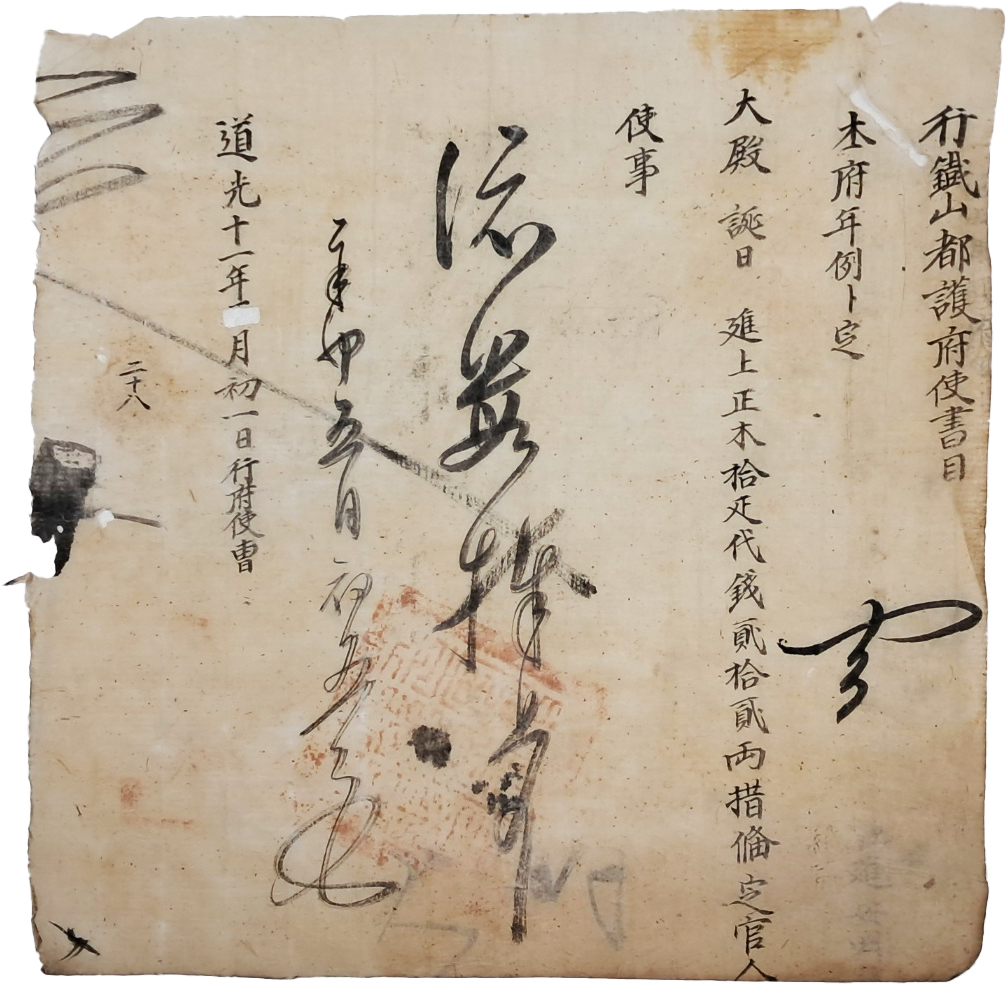 行鐵山都護府使書目
本府年例卜定
大殿 誕日 進上正木拾疋代錢貳拾貳兩措備定官人
使事
依數捧上
五月初五日
道光十一年二月初一日行府使曹
二十八